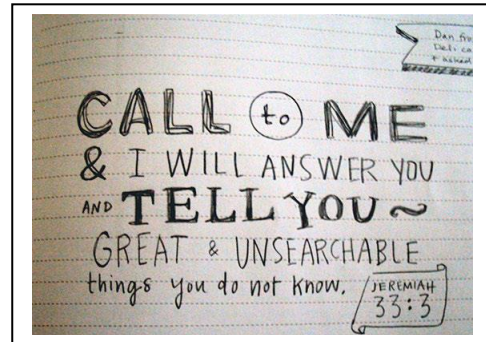 Dan fro
Deli ca
+ asked
CALL to ME
& I WILL ANSWER YOU
AND TELL YOU ~
GREAT & UNSEARCHABLE
things you do not know.
JEREMIAH
33:3